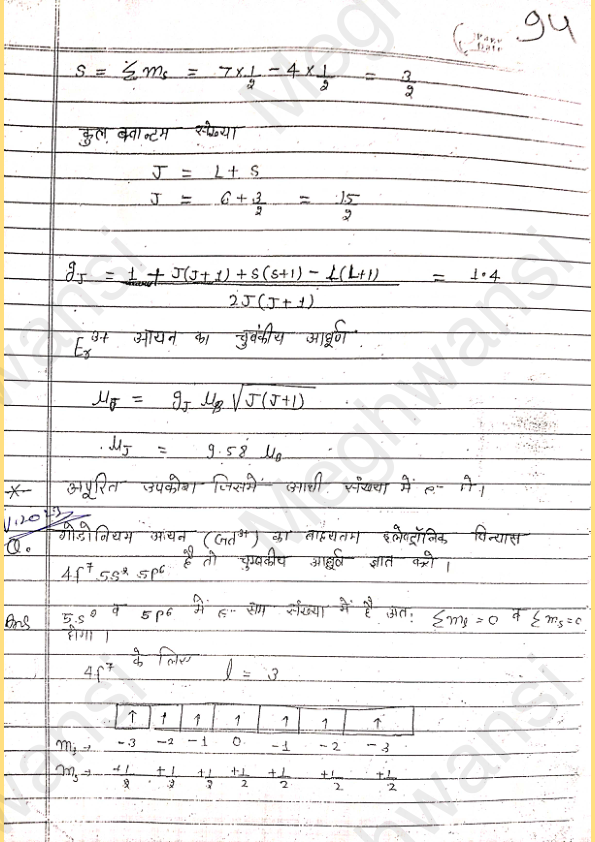 94
Page
Date
S = Σms = 7×1/2 - 4×1/2 = 3/2
कुल क्वान्टम संख्या
J = L + S
J = 6 + 3/2 = 15/2
gJ = 1 + J(J+1) + S(S+1) - L(L+1) / 2J(J+1) = 1.4
Er3+ आयन का चुवंकीय आघूर्ण
μJ = gJ μB √J(J+1)
μJ = 9.58 μB
*- अपूरित उपकोश जिसमें आधी संख्या में e- में।
Q. गोडोनियम आयन (Gd3+) का बाह्यतम इलेक्ट्रॉनिक विन्यास
4f7 5s2 5p6 है तो चुम्बकीय आघूर्ण ज्ञात करो।
Ans 5s0 व 5p6 में e- सम संख्या में है अतः Σml = 0 व Σms = 0
होगा।
4f7 के लिस l = 3
↑ ↑ ↑ ↑ ↑ ↑ ↑
ml → -3 -2 -1 0 -1 -2 -3
ms → +1/2 +1/2 +1/2 +1/2 +1/2 +1/2 +1/2
Meghwansi